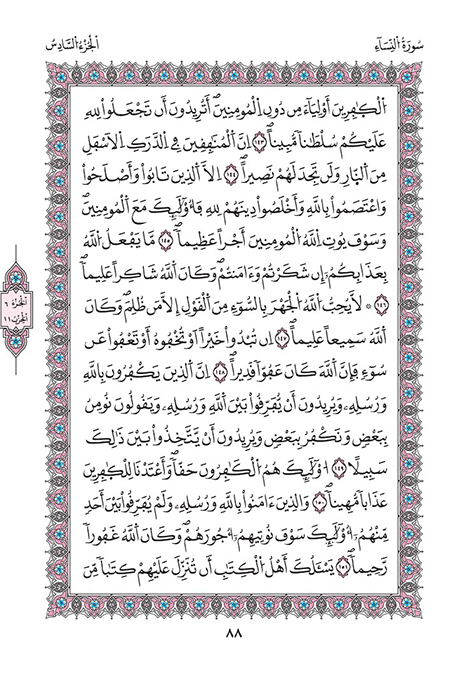 سُورَةُ النِّسَآءِ
الْجُزْءُ السَّادِسُ
اَ۬لْكٰفِرِينَ أَوْلِيَآءَ مِن دُونِ اِ۬لْمُومِنِينَۖ أَتُرِيدُونَ أَن تَجْعَلُواْ لِلهِ
عَلَيْكُمْ سُلْطَٰناً مُّبِيناًۖ ١٤٣ اِنَّ اَ۬لْمُنَٰفِقِينَ فِے اِ۬لدَّرَكِ اِ۬لَاسْفَلِ
مِنَ اَ۬لنّ۪ارِ وَلَن تَجِدَ لَهُمْ نَصِيراًۖ ١٤٤ اِلَّا اَ۬لذِينَ تَابُواْ وَأَصْلَحُواْ
وَاعْتَصَمُواْ بِاللَّهِ وَأَخْلَصُواْ دِينَهُمْ لِلهِ فَأُوْلَٰٓئِكَ مَعَ اَ۬لْمُومِنِينَۖ
وَسَوْفَ يُوتِ اِ۬للَّهُ اُ۬لْمُومِنِينَ أَجْراً عَظِيماًۖ ١٤٥ مَّا يَفْعَلُ اُ۬للَّهُ
بِعَذَابِكُمُۥٓ إِن شَكَرْتُمْ وَءَامَنتُمْۖ وَكَانَ اَ۬للَّهُ شَاكِراً عَلِيماًۖ
١٤٦ لَّا يُحِبُّ اُ۬للَّهُ اُ۬لْجَهْرَ بِالسُّوٓءِ مِنَ اَ۬لْقَوْلِ إِلَّا مَن ظُلِمَۖ وَكَانَ
اَ۬للَّهُ سَمِيعاً عَلِيماًۖ ١٤٧ اِن تُبْدُواْ خَيْراً اَوْ تُخْفُوهُ أَوْ تَعْفُواْ عَن
سُوٓءٖ فَإِنَّ اَ۬للَّهَ كَانَ عَفُوّاً قَدِيراًۖ ١٤٨ اِنَّ اَ۬لذِينَ يَكْفُرُونَ بِاللَّهِ
وَرُسُلِهِۦ وَيُرِيدُونَ أَنْ يُّفَرِّقُواْ بَيْنَ اَ۬للَّهِ وَرُسُلِهِۦ وَيَقُولُونَ نُومِنُ
بِبَعْضٖ وَنَكْفُرُ بِبَعْضٖ وَيُرِيدُونَ أَنْ يَّتَّخِذُواْ بَيْنَ ذَٰلِكَ
سَبِيلاً ١٤٩ ا۟وْلَٰٓئِكَ هُمُ اُ۬لْكَٰفِرُونَ حَقّاًۖ وَأَعْتَدْنَا لِلْكٰ۪فِرِينَ
عَذَاباً مُّهِيناًۖ ١٥٠ وَالذِينَ ءَامَنُواْ بِاللَّهِ وَرُسُلِهِۦ وَلَمْ يُفَرِّقُواْ بَيْنَ أَحَدٖ
مِّنْهُمُۥٓ أُوْلَٰٓئِكَ سَوْفَ نُوتِيهِمُۥٓ أُجُورَهُمْۖ وَكَانَ اَ۬للَّهُ غَفُوراً
رَّحِيماًۖ ١٥١ يَسْـَٔلُكَ أَهْلُ اُ۬لْكِتَٰبِ أَن تُنَزِّلَ عَلَيْهِمْ كِتَٰباً مِّنَ
الجُزء ٦
الحِزب ١١
٨٨